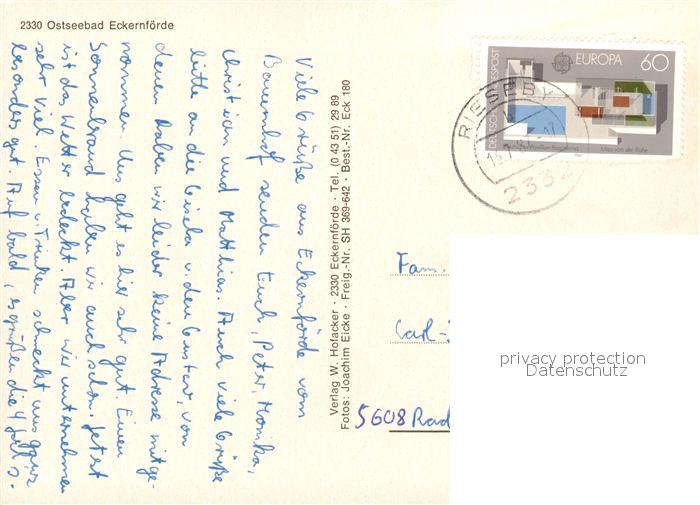 2330 Ostseebad Eckernförde
Viele Grüße aus Eckernförde vom
Bauernhof senden Euch, Peter, Monika,
Christian und Matthias. Auch viele Grüße
bitte an die Gisela u. den Gustav, von
denen haben wir leider keine Adresse mitge-
nommen. Uns geht es hier sehr gut. Einen
Sonnenbrand haben wir auch schon. Jetzt
ist das Wetter bedeckt. Aber wir unternehmen
sehr viel. Essen u. Trinken schmeckt uns ganz
besonders gut. Auf bald, es grüßen die 4
Verlag W. Hofacker · 2330 Eckernförde · Tel. (0 43 51) 29 89
Fotos: Joachim Eicke · Freig.-Nr. SH 369-642 · Best.-Nr. Eck 180
DEUTSCHE BUNDESPOST
EUROPA 60
Mies van der Rohe
RIESEBY
2332
Fam.
Carl-
5608 Rad
privacy protection
Datenschutz